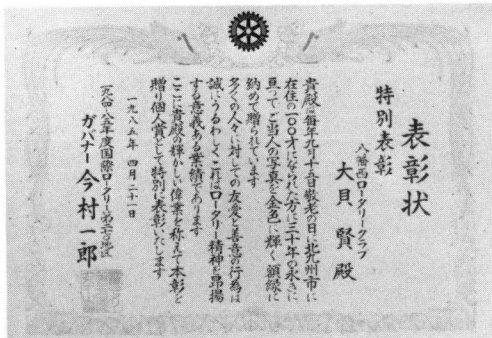 表彰状
特別表彰
八幡西ロータリークラブ
大貝 賢 殿
貴殿は毎年九月十五日敬老の日に北九州市に
在住の一〇〇才になられた方に三十年の永きに
亘ってご当人の写真を金色に輝く額縁に
納めて贈られています
多くの人々に対しての友愛と善意の行為は
誠にうるわしくこれはロータリー精神を昂揚
する意義ある業績であります
ここに貴殿の輝かしい偉業を称えて本彰を
贈り個人賞として特別に表彰いたします
一九八五年 四月二十一日
一九八四─八五年度国際ロータリー第二七〇地区
ガバナー 今村一郎